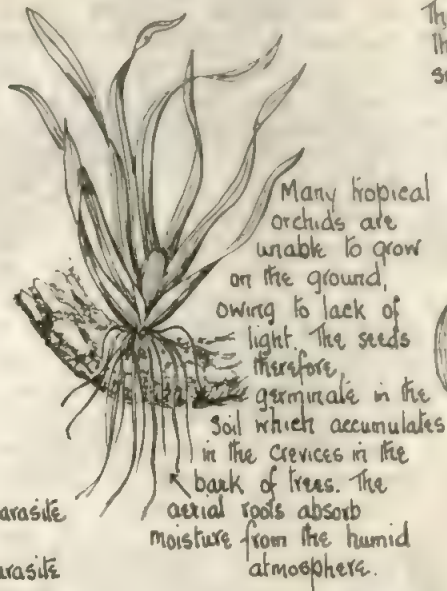 Many tropical
orchids are
unable to grow
on the ground,
owing to lack of
light. The seeds
therefore,
germinate in the
soil which accumulates
in the crevices in the
bark of trees. The
aerial roots absorb
moisture from the humid
atmosphere.
arasite
arasite